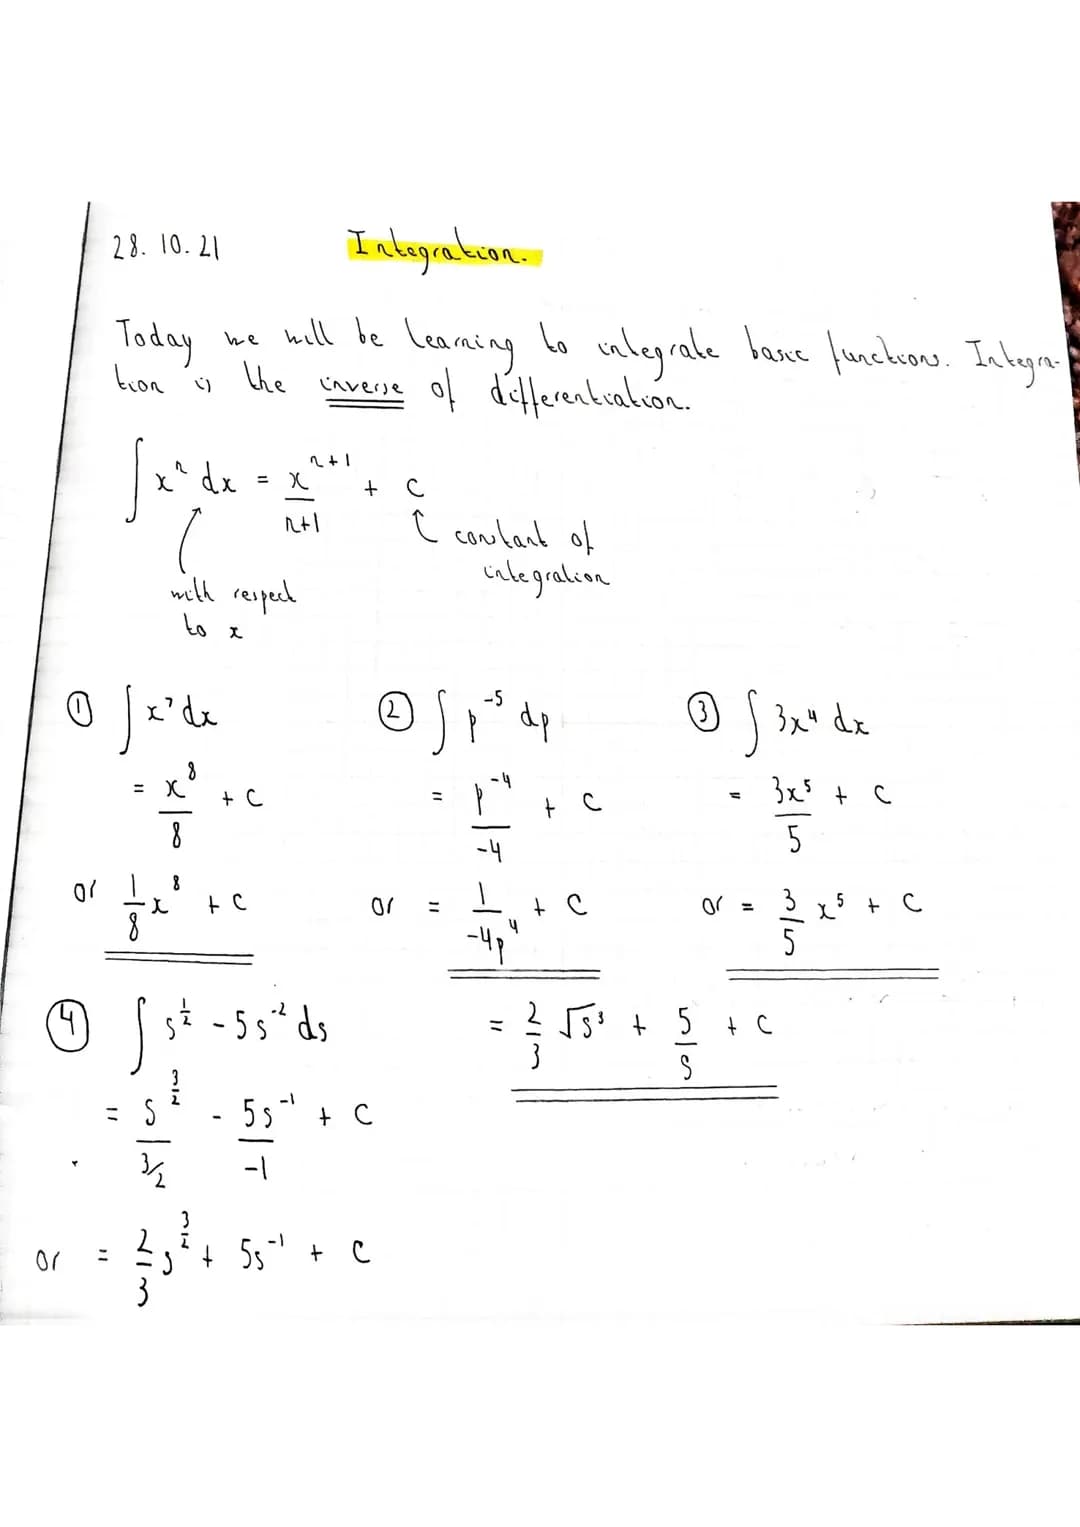 28. 10. 21 Integration.
Today we will be learning to integrate basic functions. Integra-
tion is the inverse of differentiation.
∫ xⁿ dx = xⁿ⁺¹/n+1 + c
↑ constant of
integration
with respect
to x
① ∫ x⁷ dx
= x⁸/8 + c
or 1/8 x⁸ + c
② ∫ p⁻⁵ dp
= p⁻⁴/-4 + c
or = 1/-4p⁴ + c
③ ∫ 3x⁴ dx
= 3x⁵/5 + c
or = 3/5 x⁵ + c
④ ∫ s^½ - 5s⁻² ds
= s^(3/2)/(3/2) - 5s⁻¹/-1 + c
or = 2/3 s^(3/2) + 5s⁻¹ + c
= 2/3 √s³ + 5/s + c